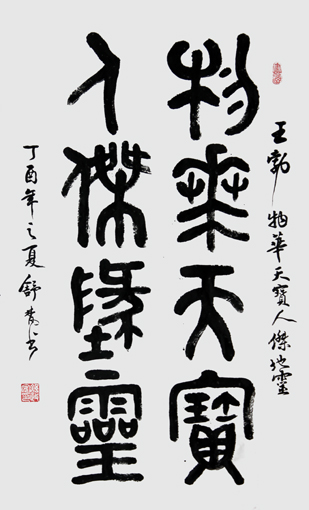 王勃 物華天寶人傑地靈
物華天寶
人傑墬靈
丁酉年之夏舒